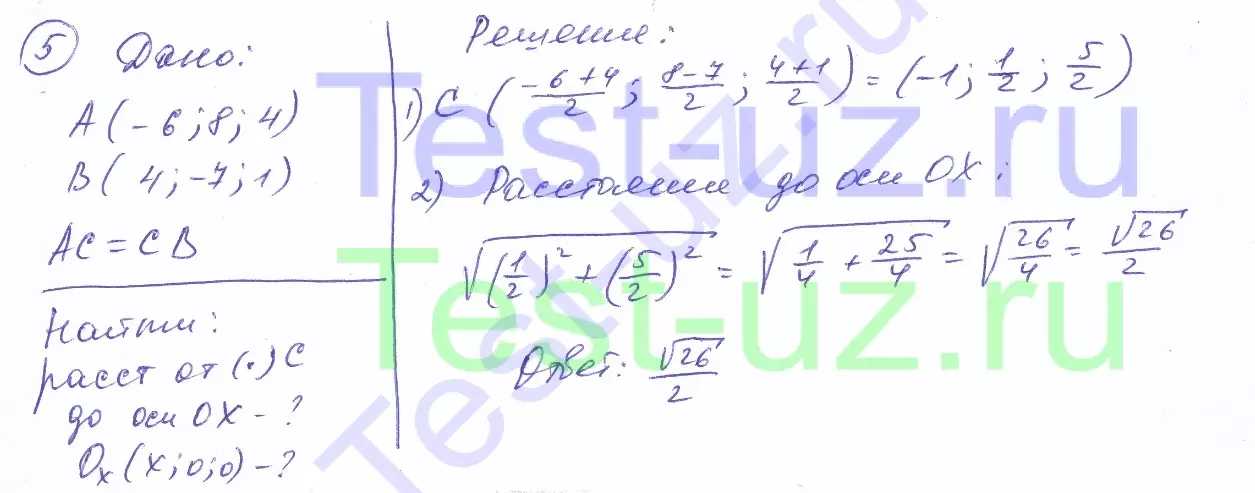 5 Дано:
A(-6;8;4)
B(4;-7;1)
AC = CB
Найти:
расст от (·) C
до оси OX - ?
Oₓ(x;0;0) - ?
Решение:
1) C (\frac{-6+4}{2}; \frac{8-7}{2}; \frac{4+1}{2}) = (-1; \frac{1}{2}; \frac{5}{2})
2) Расстояние до оси OX:
\sqrt{(\frac{1}{2})^2 + (\frac{5}{2})^2} = \sqrt{\frac{1}{4} + \frac{25}{4}} = \sqrt{\frac{26}{4}} = \frac{\sqrt{26}}{2}
Ответ: \frac{\sqrt{26}}{2}
Test-uz.ru
Test-uz.ru
Test-uz.ru